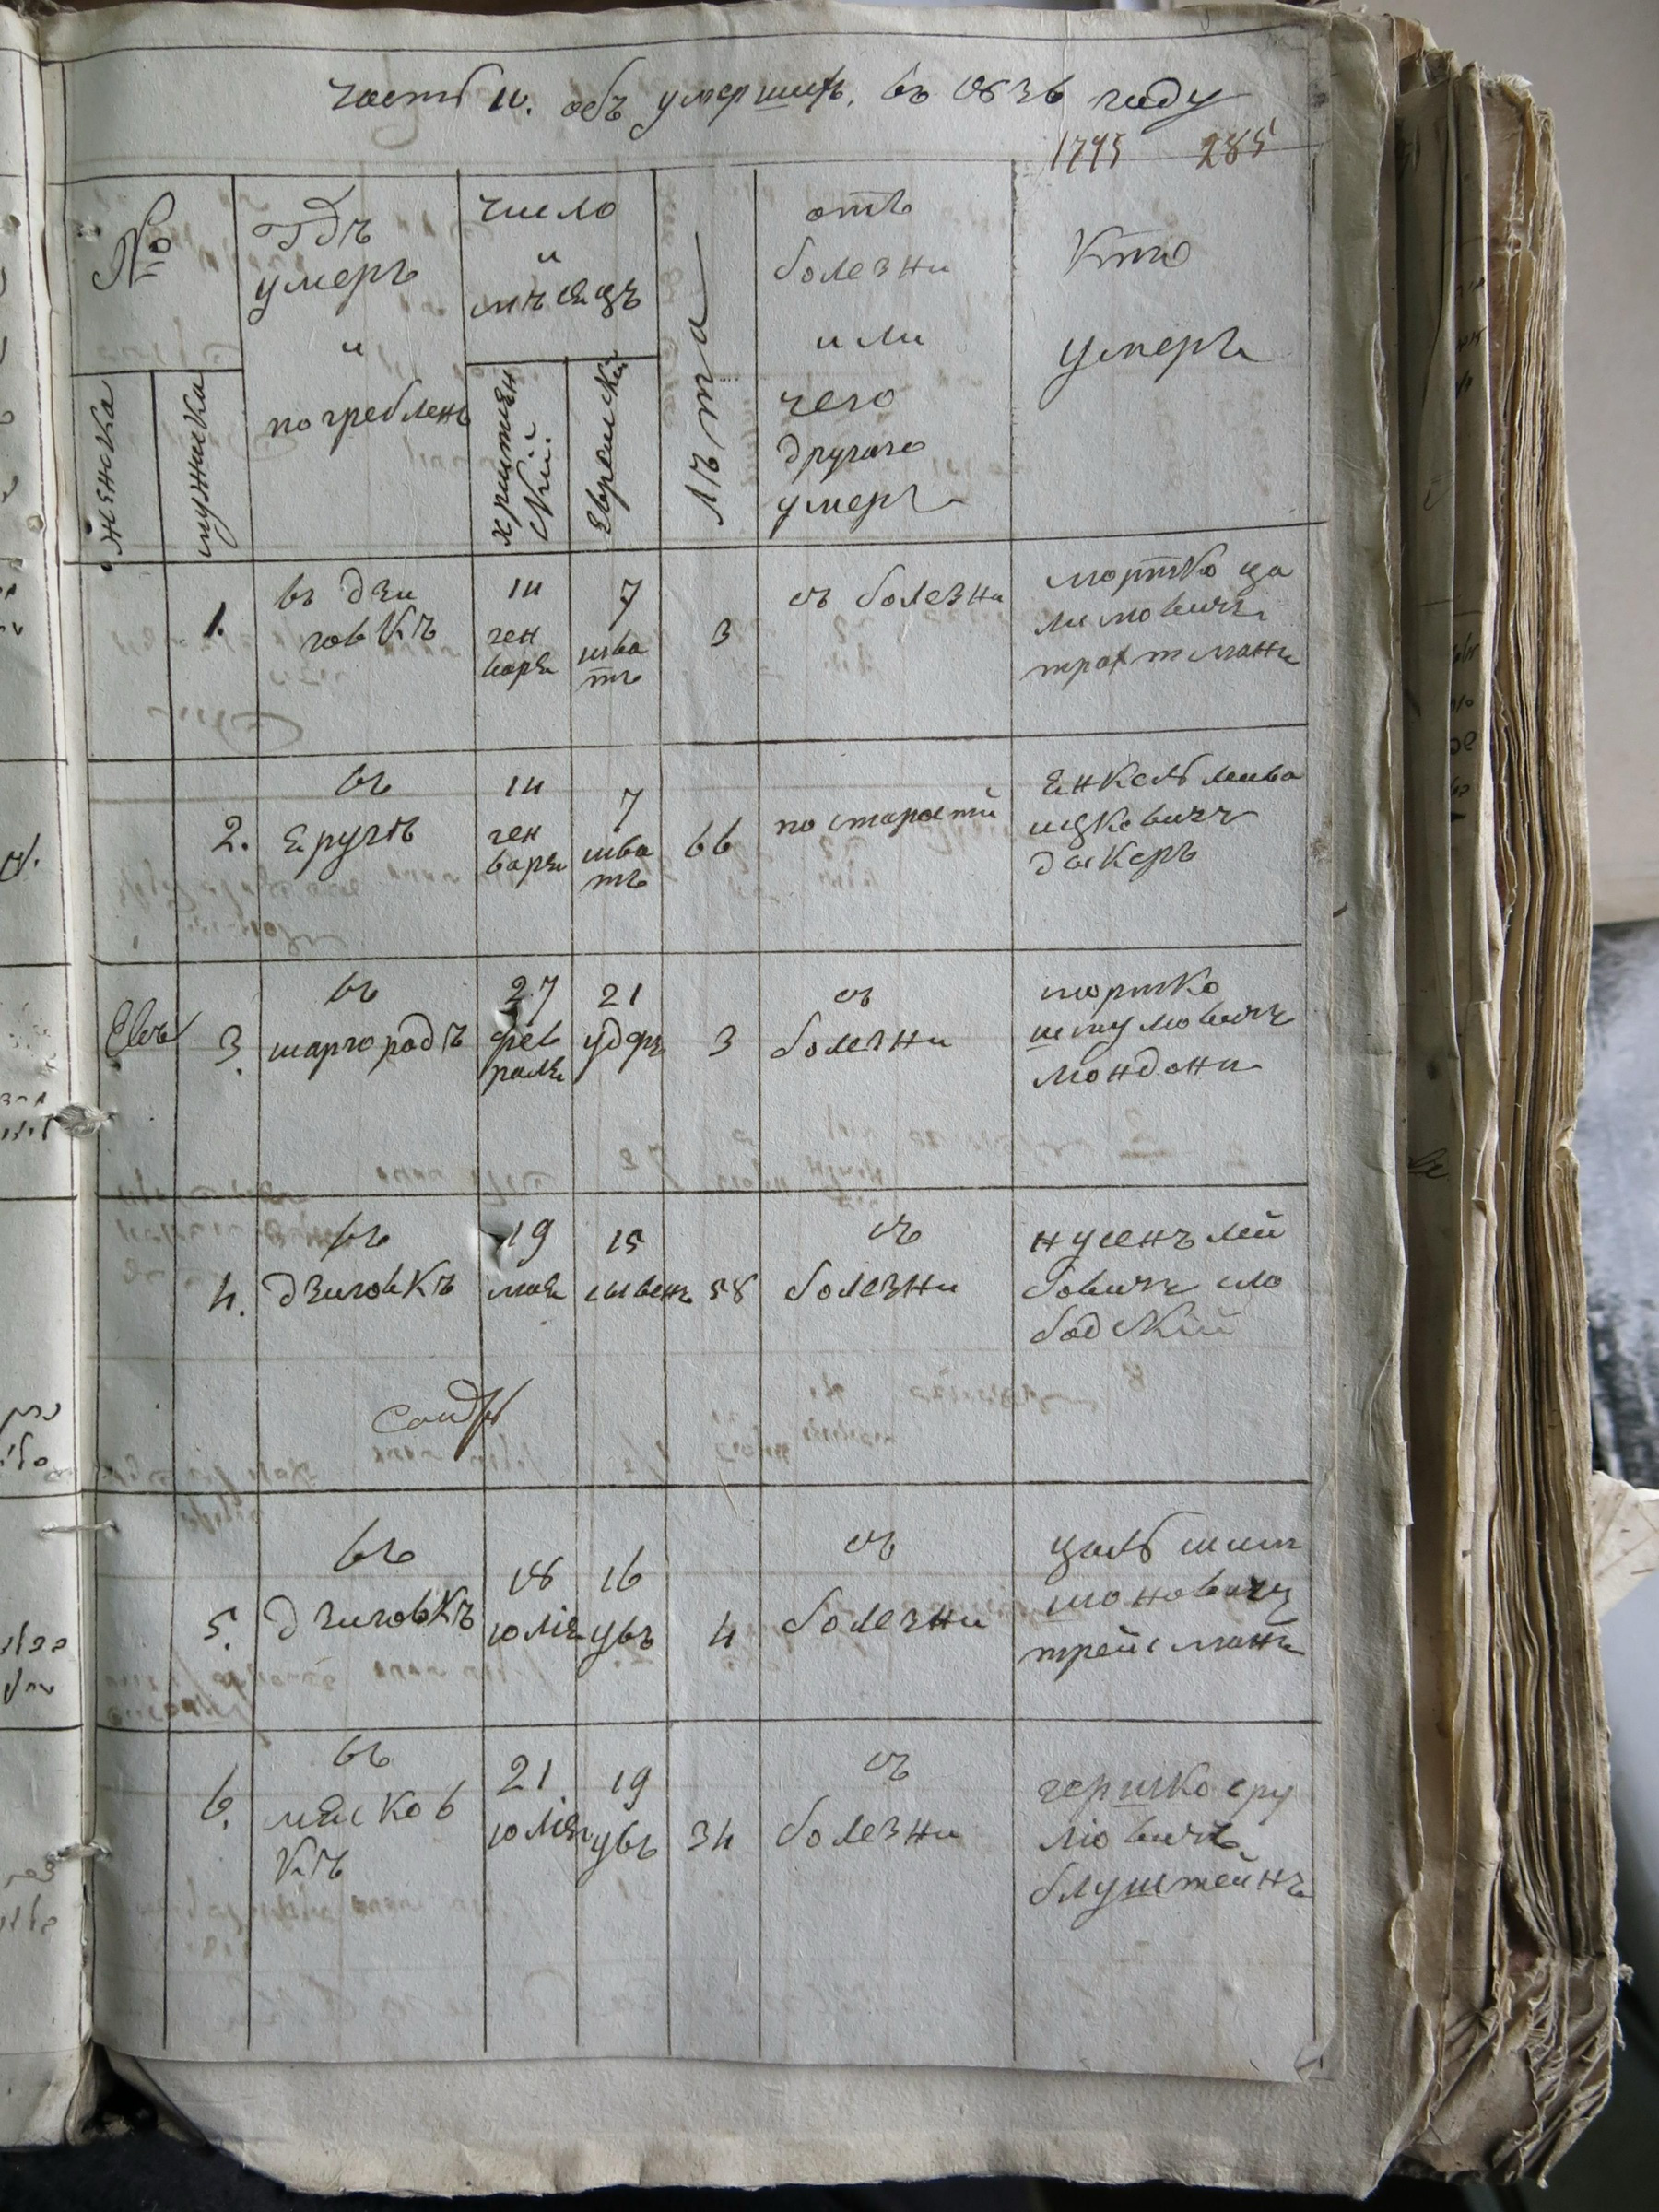 часть IV. объ умершихъ, въ 1836 году
1795 285
№
женска
мужиска
Гдѣ
умеръ
и
погребленъ
число
и
мѣсяцъ
християн
ский.
Еврейский
лѣта
отъ
болезни
или
чего
другаго
умеръ
Кто
умеръ
1.
въ дзи
говкѣ
14
ген
варя
7
шва
тъ
3
съ болезни
мортко ца
лимовичъ
трахтманъ
2.
въ
яругѣ
14
ген
варя
7
шва
тъ
66
по старости
янкель лейва
ицковичъ
даскеръ
3.
въ
шаргородѣ
27
фев
раля
21
удфъ
3
съ
болезни
мортко
шмулювичъ
4.
въ
дзиговкѣ
19
мая
15
сывенъ
58
съ
болезни
нусенъ лей
бовичъ сло
бодский
5.
въ
дзиговкѣ
18
юлія
16
увъ
4
съ
болезни
трейсманъ
6.
въ
мясков
кѣ
21
юлія
19
увъ
34
съ
болезни
гершко сру
лювичъ
блуштейнъ